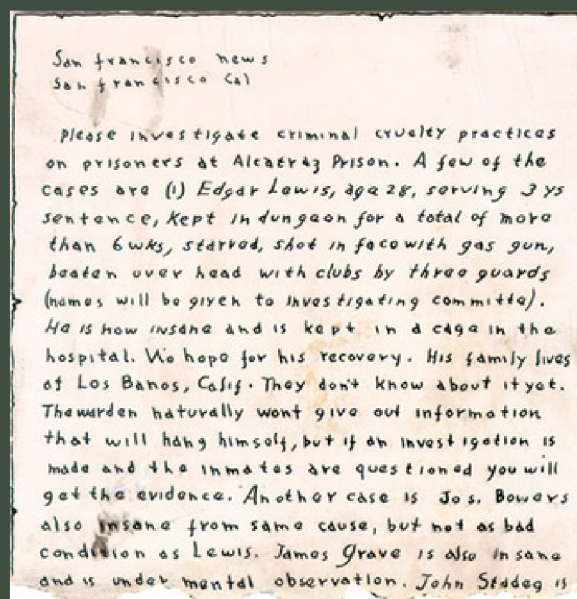 San francisco news
San francisco Cal
Please investigate criminal cruelty practices
on prisoners at Alcatraz Prison. A few of the
cases are (1) Edgar Lewis, age 28, serving 3 ys
sentence, kept in dungeon for a total of more
than 6 wks, starved, shot in face with gas gun,
beaten over head with clubs by three guards
(names will be given to investigating committe).
He is now insane and is kept in a cage in the
hospital. No hope for his recovery. His family lives
at Los Banos, Calif. They don't know about it yet.
The warden naturally wont give out information
that will hang himself, but if an investigation is
made and the inmates are questioned you will
get the evidence. Another case is Jos. Bowers
also insane from same cause, but not as bad
condition as Lewis. James Grove is also insane
and is under mental observation. John Stadeg is